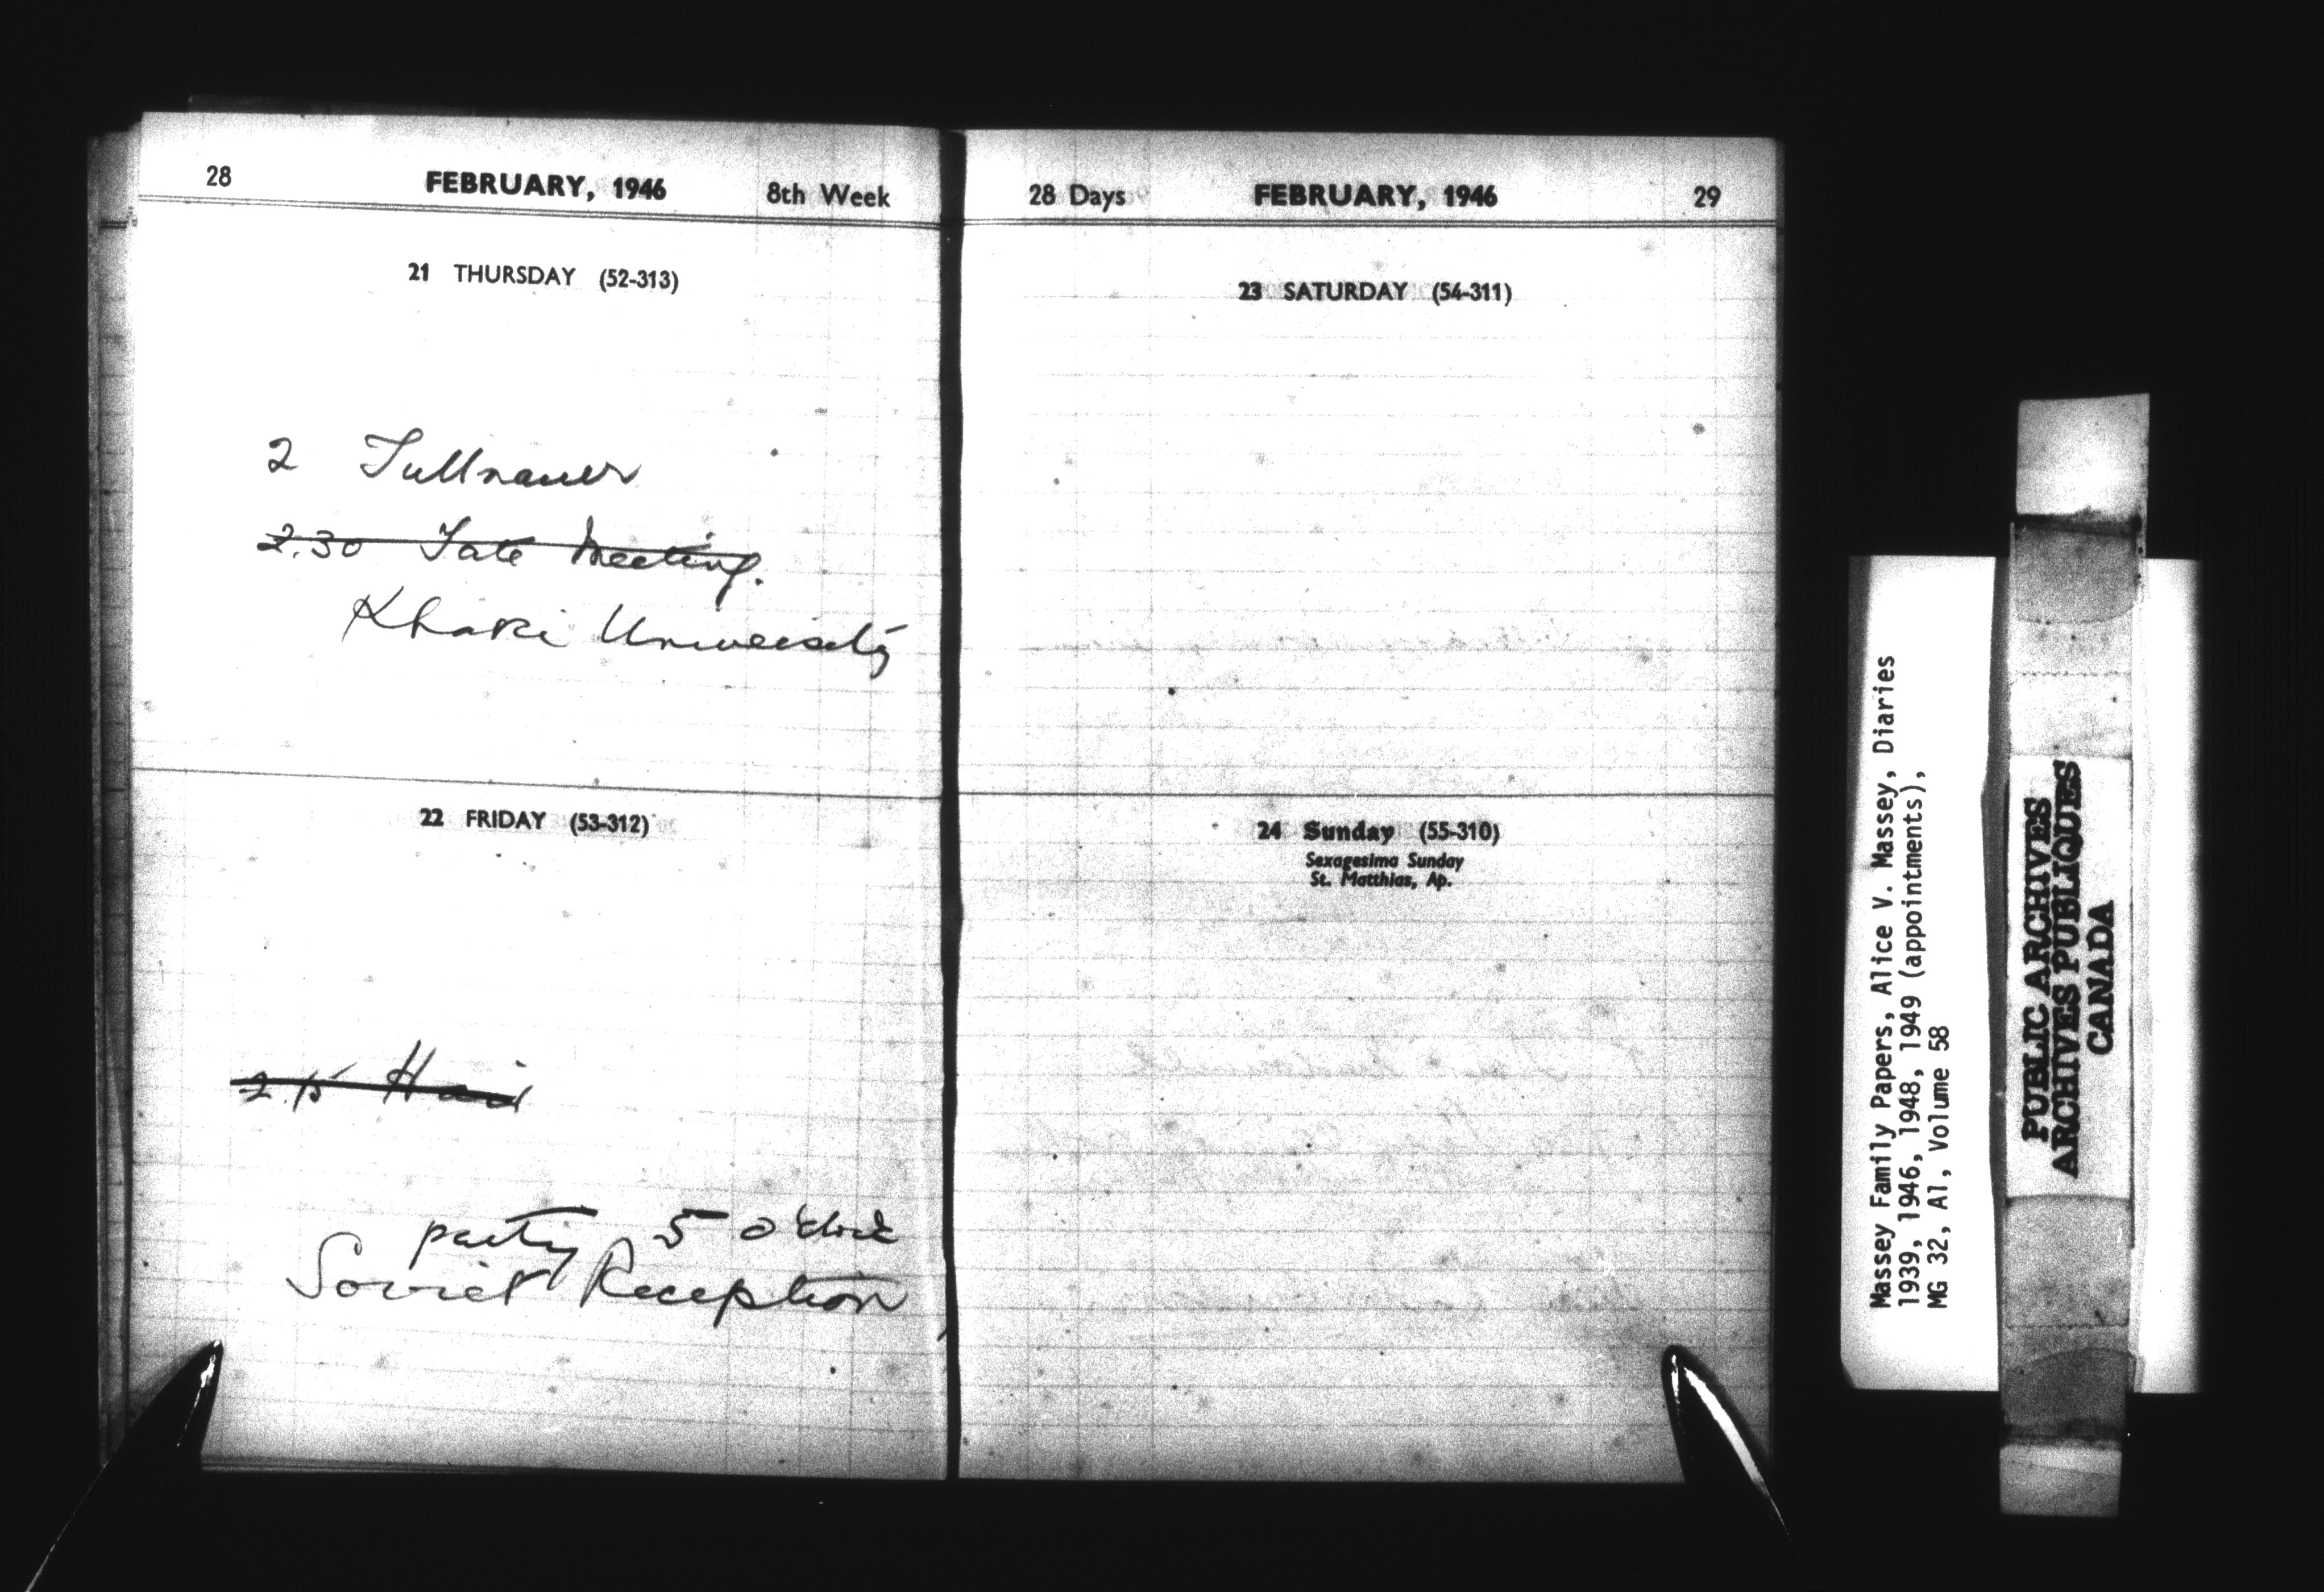 28 FEBRUARY, 1946 8th Week
21 THURSDAY (52-313)
2
2.30 Tate Meeting.
Khaki University
22 FRIDAY (53-312)
2.15 Hair
party 5 o'clock
Soviet Reception
28 Days FEBRUARY, 1946 29
23 SATURDAY (54-311)
24 Sunday (55-310)
Sexagesima Sunday
St. Matthias, Ap.
Massey Family Papers, Alice V. Massey, Diaries
1939, 1946, 1948, 1949 (appointments),
MG 32, A1, Volume 58
PUBLIC ARCHIVES
ARCHIVES PUBLIQUES
CANADA